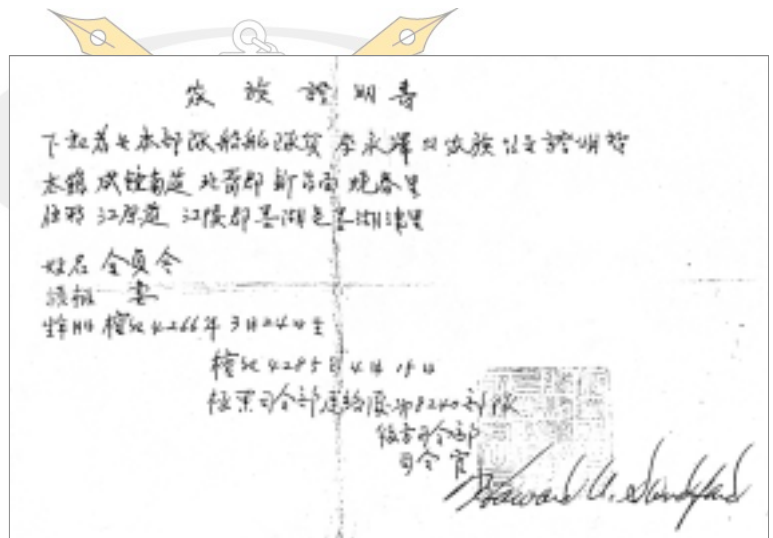 家族證明書
下記者는本部隊船舶隊員 李永澤의家族임을證明함
本籍 咸鏡南道 北靑郡 新昌面 晩春里
住所 江原道 江陵郡 墨湖邑 墨湖津里
姓名 全貞今
妻
檀紀4266年3月24日生
檀紀4285年4月18日
極東司令部連絡隊第8240部隊
後方司令部
司令官
Howard